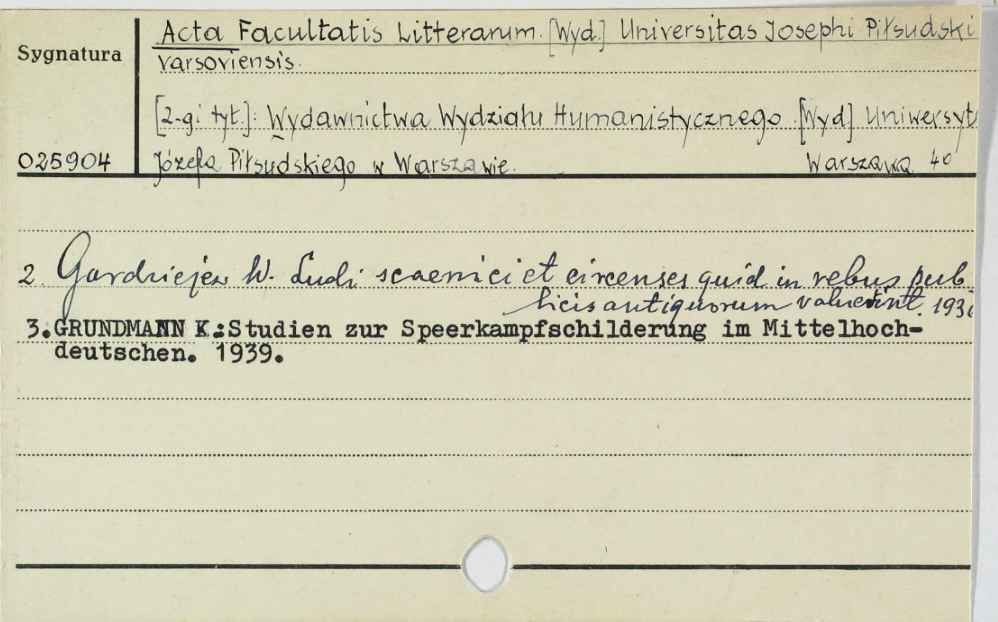 Sygnatura
Acta Facultatis Litterarum. [Wyd.] Universitas Josephi Piłsudski
Varsoviensis.
[2-gi tyt.]: Wydawnictwa Wydziału Humanistycznego. [Wyd] Uniwersyt.
025904 Józefa Piłsudskiego w Warszawie. Warszawa 40
2 W. Ludi scaenici et circenses quid in rebus pub
licis antiquorum valuerint.
3. GRUNDMANN K.:Studien zur Speerkampfschilderung im Mittelhoch-
deutschen. 1939.